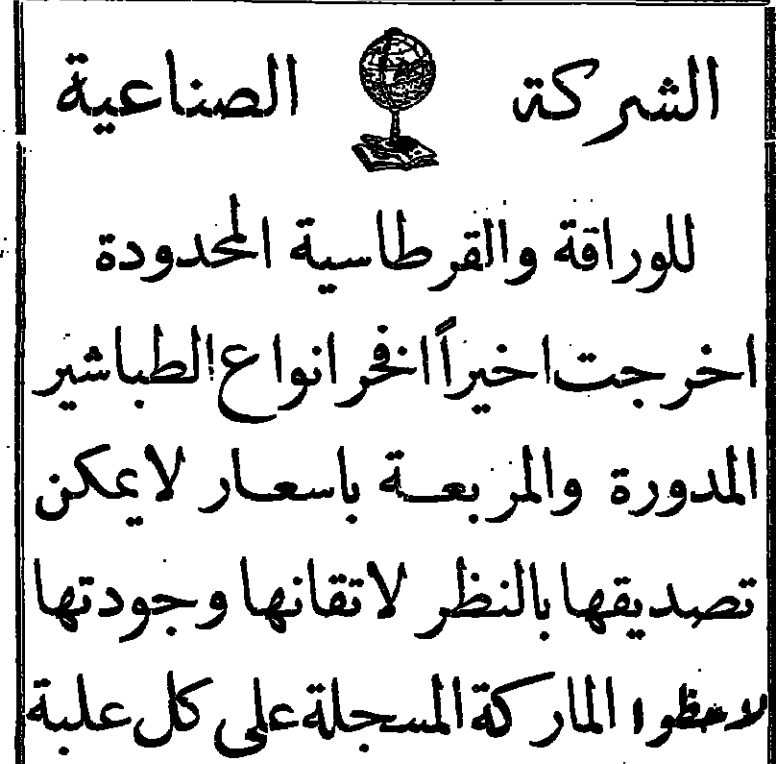 الشركة الصناعية
للوراقة والقرطاسية المحدودة
اخرجت اخيراً افخر انواع الطباشير
المدورة والمربعة باسعار لايمكن
تصديقها بالنظر لاتقانها وجودتها
لاحظوا الماركة المسجلة على كل علبة